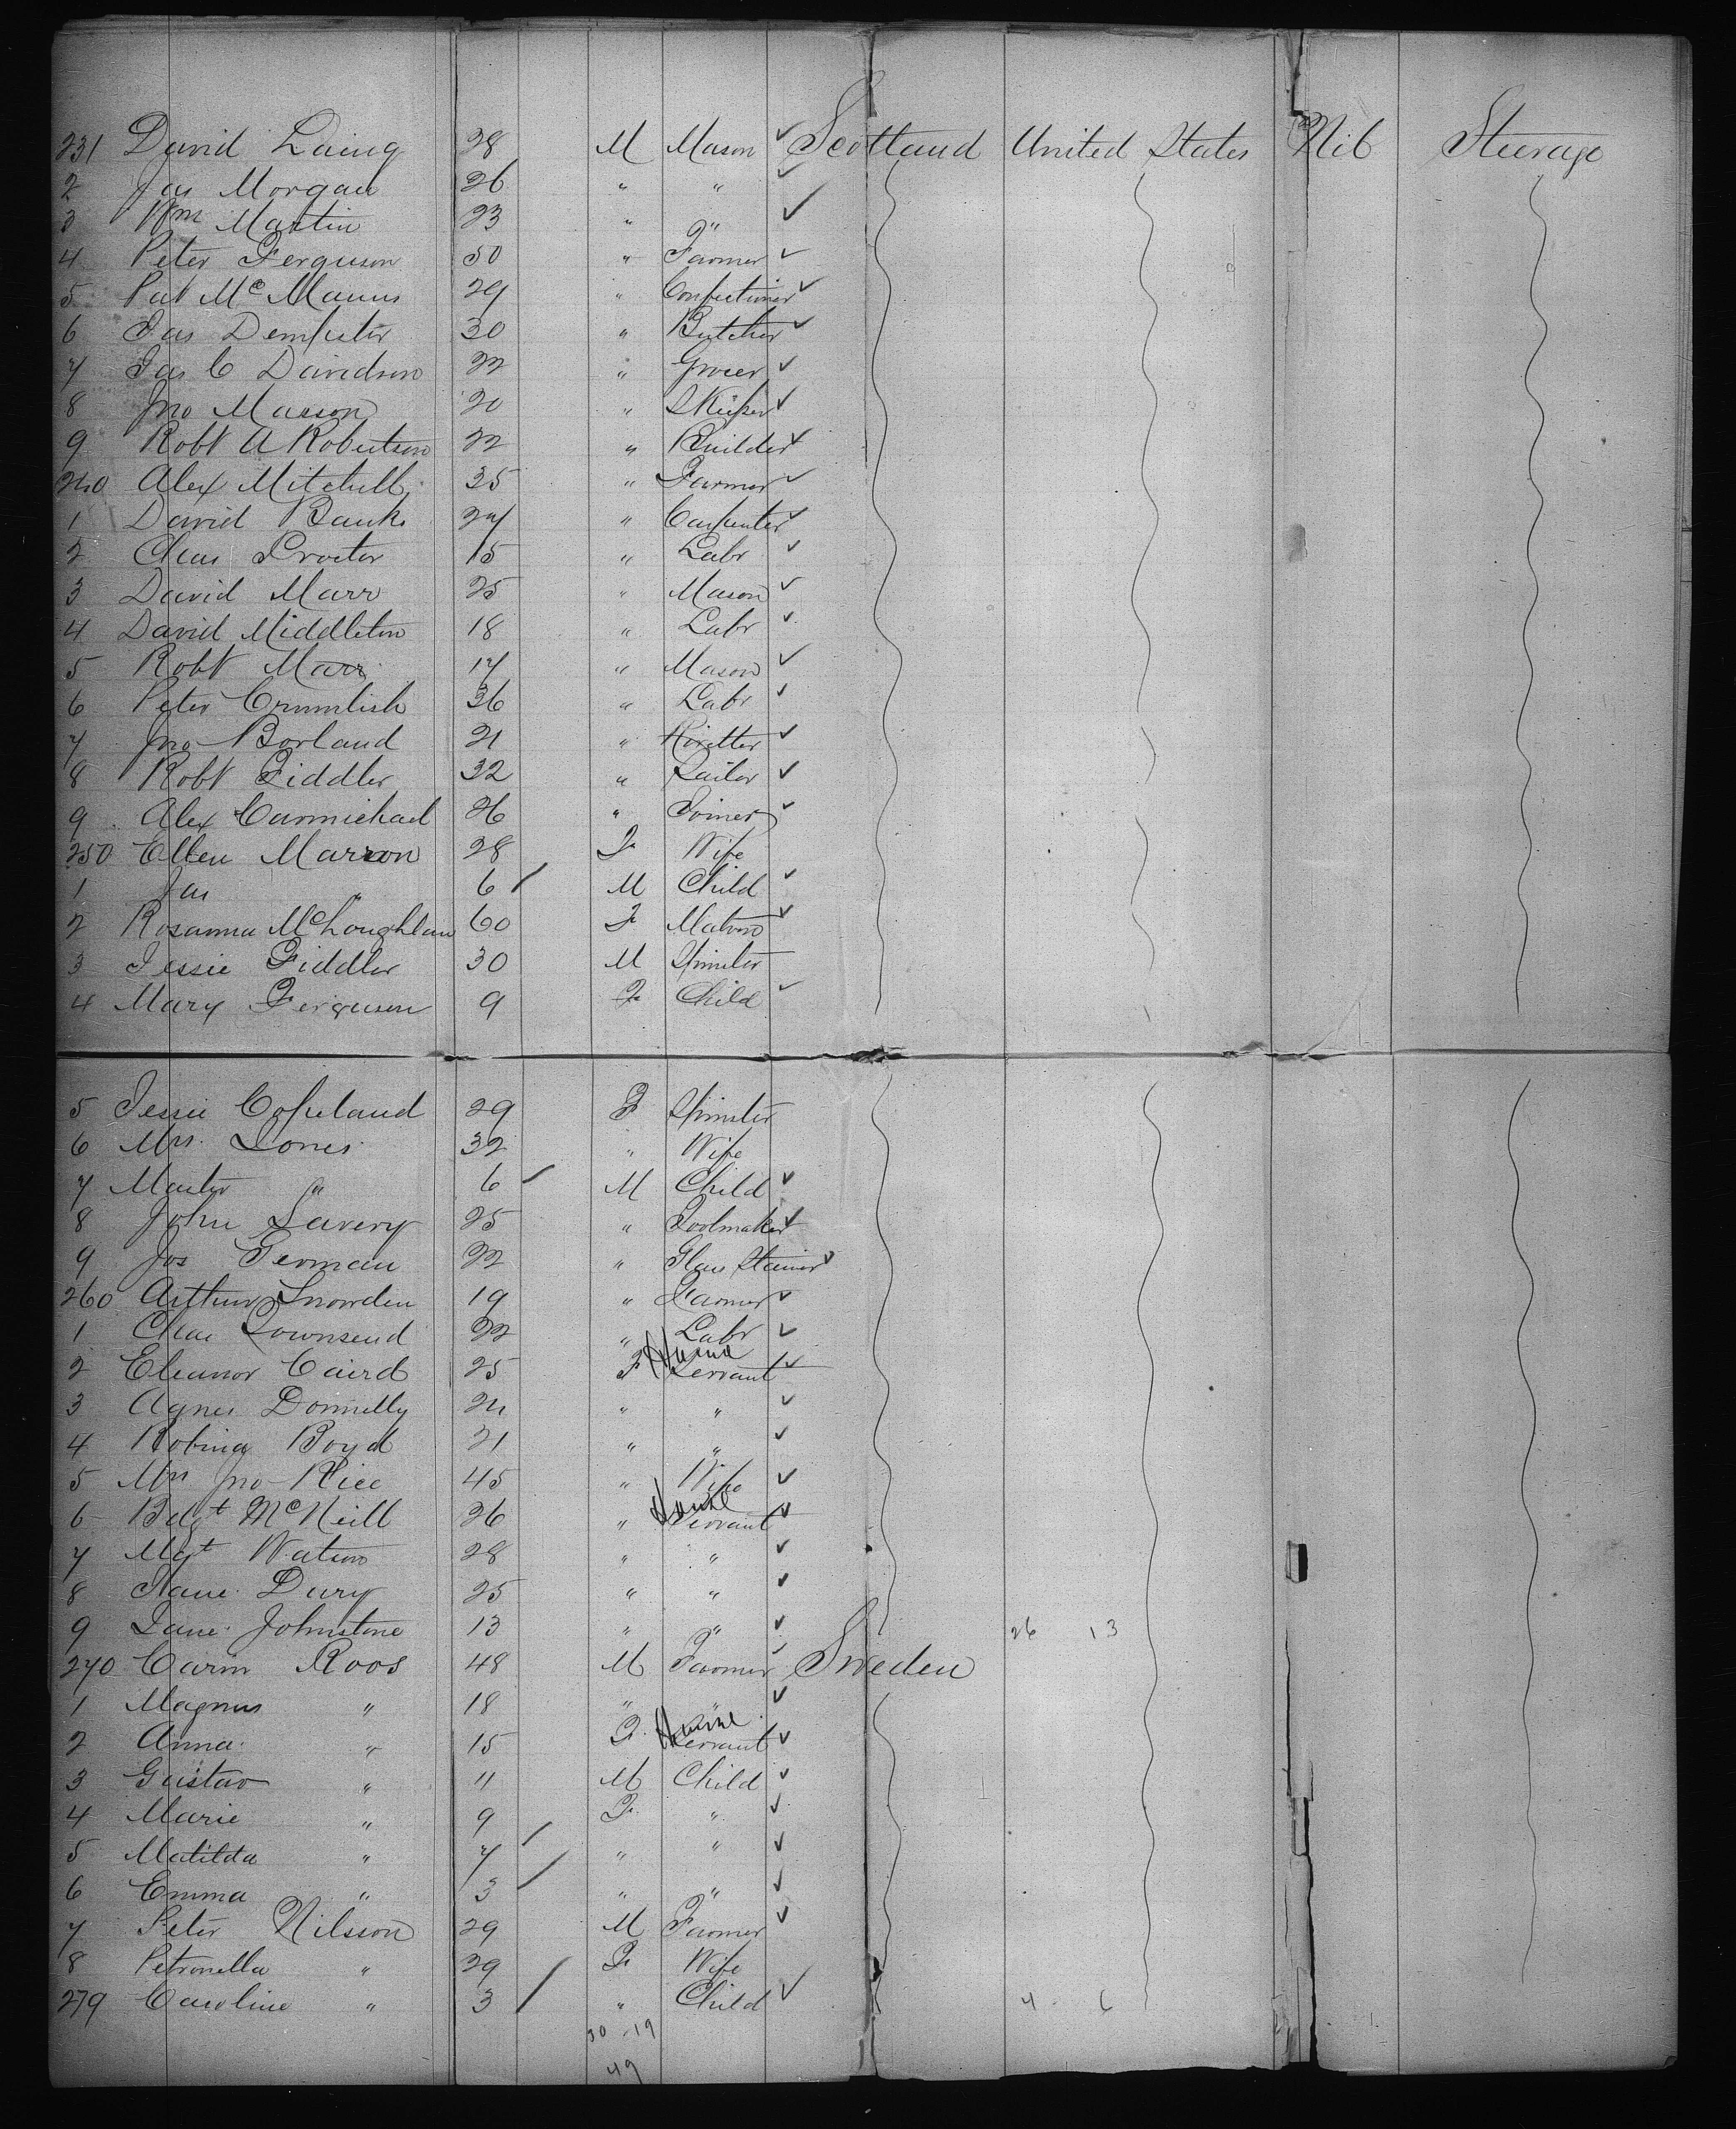 231 David Laing 28 M Mason ✓ Scotland United States Nil Steerage
2 Jas Morgan 26 " " ✓
3 Wm Martin 23 " " ✓
4 Peter Ferguson 50 " Farmer ✓
5 Pat McManus 29 " Confectioner ✓
6 Jas Dempster 30 " Butcher ✓
7 Jas C Davidson 22 " Grocer ✓
8 Jno Masson 20 " SKeeper ✓
9 Robt A Robertson 22 " Builder ✓
240 Alex Mitchell 35 " Farmer ✓
1 David Banks 27 " Carpenter ✓
2 Chas Proctor 15 " Labr ✓
3 David Marr 25 " Mason ✓
4 David Middleton 18 " Labr ✓
5 Robt Marr 17 " Mason ✓
6 Peter Crumlish 36 " Labr ✓
7 Jno Borland 21 " Rivetter ✓
8 Robt Fiddler 32 " Sailor ✓
9 Alex Carmichael 26 " Joiner ✓
250 Ellen Marron 28 F Wife
1 Jas " 6 / M Child ✓
2 Rosanna McLoughlan 60 F Matron ✓
3 Jessie Fiddler 30 M Spinster
4 Mary Ferguson 9 F Child ✓
5 Jessie Copeland 29 F Spinster
6 Mrs. Jones 32 " Wife
7 Master " 6 / M Child ✓
8 John Savery 25 " Toolmaker ✓
9 Jos German 22 " Glass Stainer ✓
260 Arthur Snowden 19 " Farmer ✓
1 Chas Townsend 22 " Labr ✓
2 Eleanor Caird 25 F House Servant ✓
3 Agnes Donnelly 24 " " ✓
4 Robina Boyd 21 " " ✓
5 Mrs Jno Rice 45 " Wife ✓
6 Bdgt McNeill 26 " House Servant ✓
7 Mgt Watson 28 " " ✓
8 Jane Dury 25 " " ✓
9 Jane Johnstone 13 " " ✓ 26 13
270 Carin Roos 48 M Farmer ✓ Sweden
1 Magnus " 18 " " ✓
2 Anna " 15 F. House Servant ✓
3 Gustav " 11 M Child ✓
4 Marie " 9 F " ✓
5 Matilda " 7 / " " ✓
6 Emma " 3 / " " ✓
7 Peter Nilsson 29 M Farmer ✓
8 Petronella " 29 F Wife
279 Caroline " 3 / " Child ✓ 4 - 6
30 - 19
49